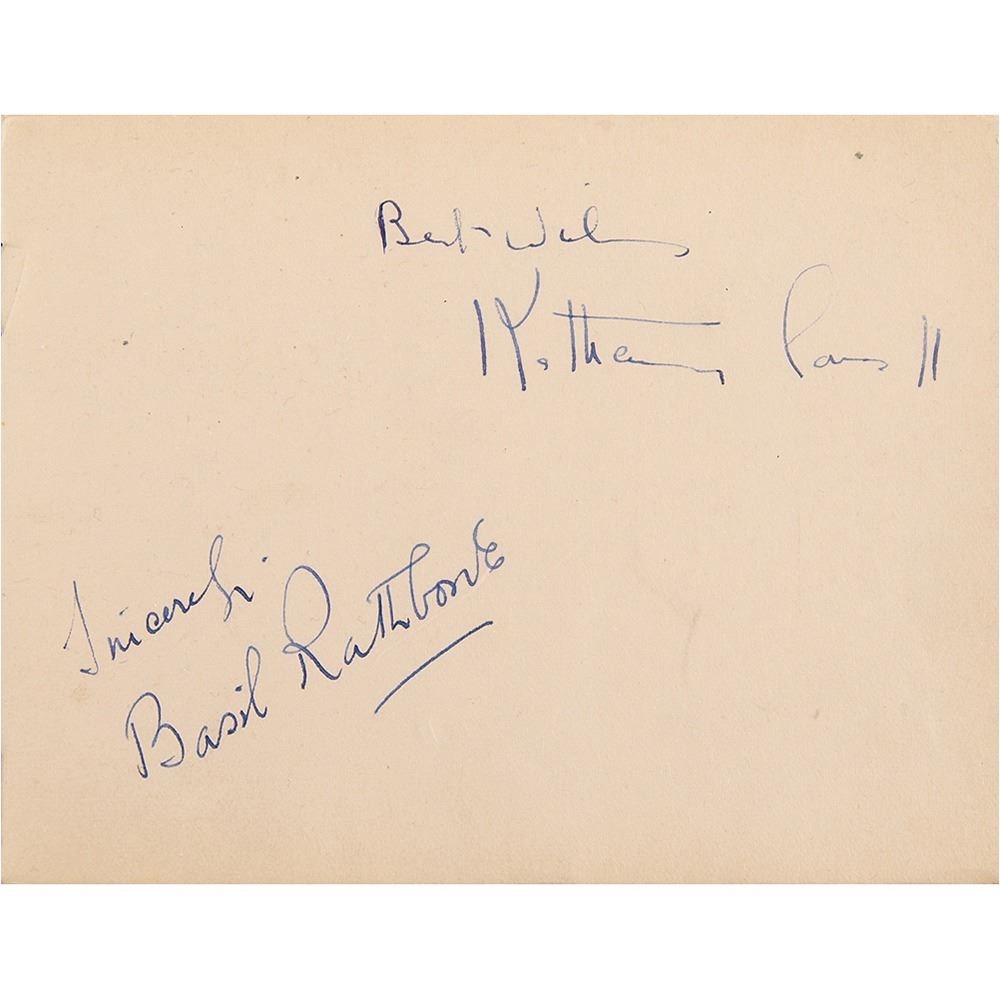 Best Wishes
Katharine Cornell
Sincerely
Basil Rathbone